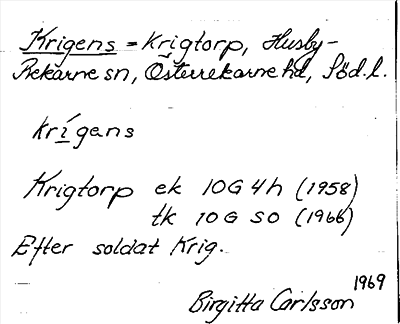 Krigens = Krigtorp, Husby-
Rekarne sn, Österrekarne hd, Söd. l.
krígens
Krigtorp ek 10G 4h (1958)
tk 10 G SO (1966)
Efter soldat Krig.
1969
Birgitta Carlsson